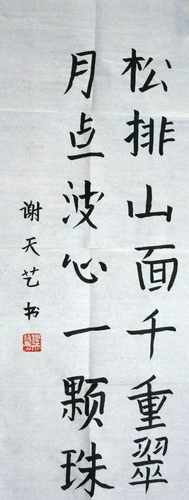 松排山面千重翠
月点波心一颗珠
谢天艺书